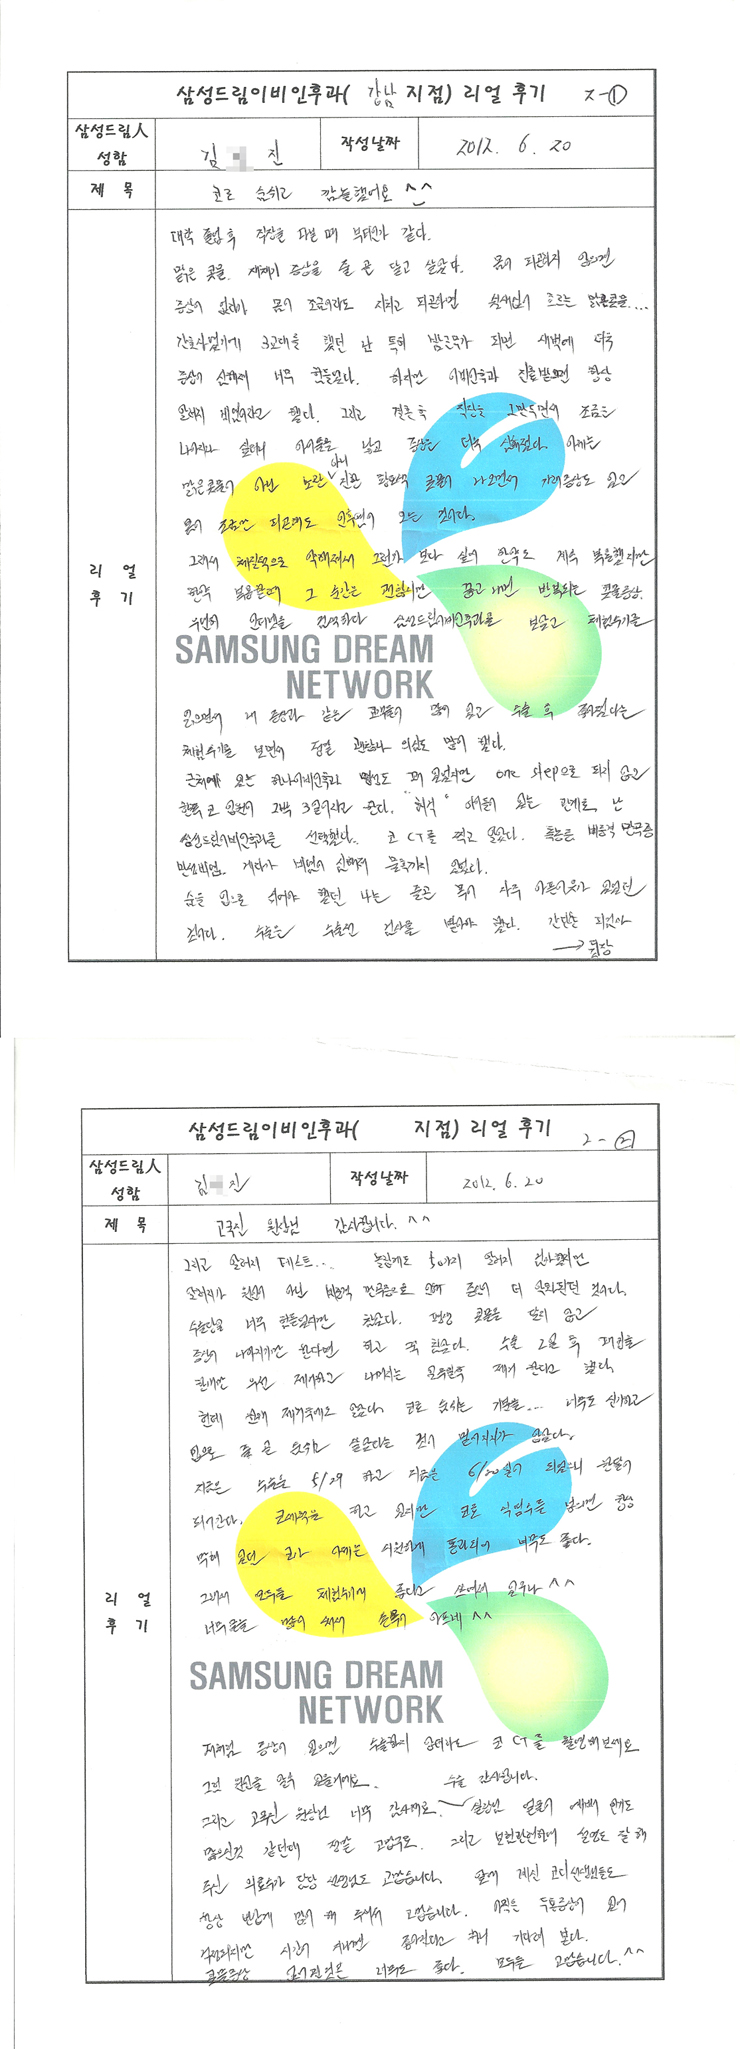 삼성드림이비인후과( 강남 지점) 리얼 후기 2-①
삼성드림人
성함
김 진
작성날짜
2012. 6. 20
제 목
코로 숨쉬고 깜놀했어요 ^^
리 얼
후 기
대학 졸업 후 직장을 다닐 때 부터인가 같다.
맑은 콧물, 재채기 증상을 줄곧 달고 살았다. 몸이 피곤하지 않으면
증상이 없다가 몸이 조금이라도 지치고 피곤하면 쉴새없이 흐르는 맑은콧물...
간호사였기에 3교대를 했던 난 특히 밤근무가 되면 새벽에 더욱
증상이 심해져 너무 힘들었다. 하지만 이비인후과 진료받으면 항상
알러지 비염이라고 했다. 그리고 결혼 후 직장을 그만두면서 조금은
나아지나 싶더니 아이들을 낳고 증상은 더욱 심해졌다. 이제는
맑은콧물이 아닌 노란 아니 진한 콧물이 나오면서 가래증상도 있고
몸이 조금만 피곤해도 인후염이 오는 것이다.
그래서 체질적으로 약해져서 그런가 보다 싶어 한약도 계속 복용했지만
한약 복용할때 그 순간은 괜찮지만 끊고 나면 반복되는 콧물증상.
우연히 인터넷을 검색하다 삼성드림이비인후과를 보았고 체험수기를
SAMSUNG DREAM
NETWORK
읽으면서 내 증상과 같은 환자들이 많이 있고 수술 후 좋아졌다는
체험수기를 보면서 정말 괜찮나 의심도 많이 했다.
근처에 있는 하나이비인후과 병원도 가 보았지만 one step으로 되지 않고
한쪽 코 입원이 2박 3일이라고 한다. "허걱" 아이들이 있는 관계로 난
삼성드림이비인후과를 선택했다. 코 CT를 찍고 알았다. 축농증, 비중격 만곡증
만성비염. 게다가 비염이 심해져 물혹까지 있었다.
숨을 입으로 쉬어야 했던 나는 줄곧 목이 자주 아픈이유가 있었던
것이다. 수술은 수술전 검사를 받아야 했다. 간단한 피검사
→ 뒷장
삼성드림이비인후과( 지점) 리얼 후기 2-②
삼성드림人
성함
김 진
작성날짜
2012. 6. 20
제 목
고국진 원장님 감사합니다. ^^
리 얼
후 기
그리고 알러지 테스트... 놀랍게도 50가지 알러지 검사했지만
알러지가 원인이 아닌 비중격 만곡증으로 인해 증상이 더 악화된 것이다.
수술당일 너무 힘들었지만 참았다. 평생 콧물을 달지 않고
증상이 나아지기만 한다면 하고 꾹 참았다. 수술 2일 후 패킹을
한개만 우선 제거하고 나머지는 일주일후 제거 한다고 했다.
헌데 한개 제거후에도 알았다. 코로 숨쉬는 기분을... 너무도 신기하고
입으로 줄 곧 숨쉬며 살았다는 것이 믿어지지가 않았다.
지금은 수술을 5/29 하고 지금은 6/20일이 되었으니 한달이
되어간다. 코세척을 하고 있지만 코로 식염수를 넣으면 항상
막혀 있던 코가 이제는 시원하게 통과되어 너무도 좋다.
그래서 모두들 체험수기에 좋다고 쓰여져 있구나 ^^
너무 글을 많이 써서 손목이 아프네 ^^
SAMSUNG DREAM
NETWORK
저처럼 증상이 있으면 수술할지 않더라도 코 CT를 촬영해보세요
그럼 원인을 알수 있을거에요. 수술 감사합니다.
그리고 고국진 원장님 너무 감사해요. 실장님 얼굴이 예뻐 인기도
많으신것 같던데 정말 고맙구요. 그리고 보험관련하여 설명도 잘 해
주신 의료수가 담당 선생님도 고맙습니다. 앞에 계신 코디선생님들도
항상 반갑게 맞이 해 주셔서 고맙습니다. 아직은 두통증상이 있어
시간이 지나면 좋아진다고 하니 기다려 본다.
콧물증상 없어진것은 너무도 좋다. 모두들 고맙습니다. ^^